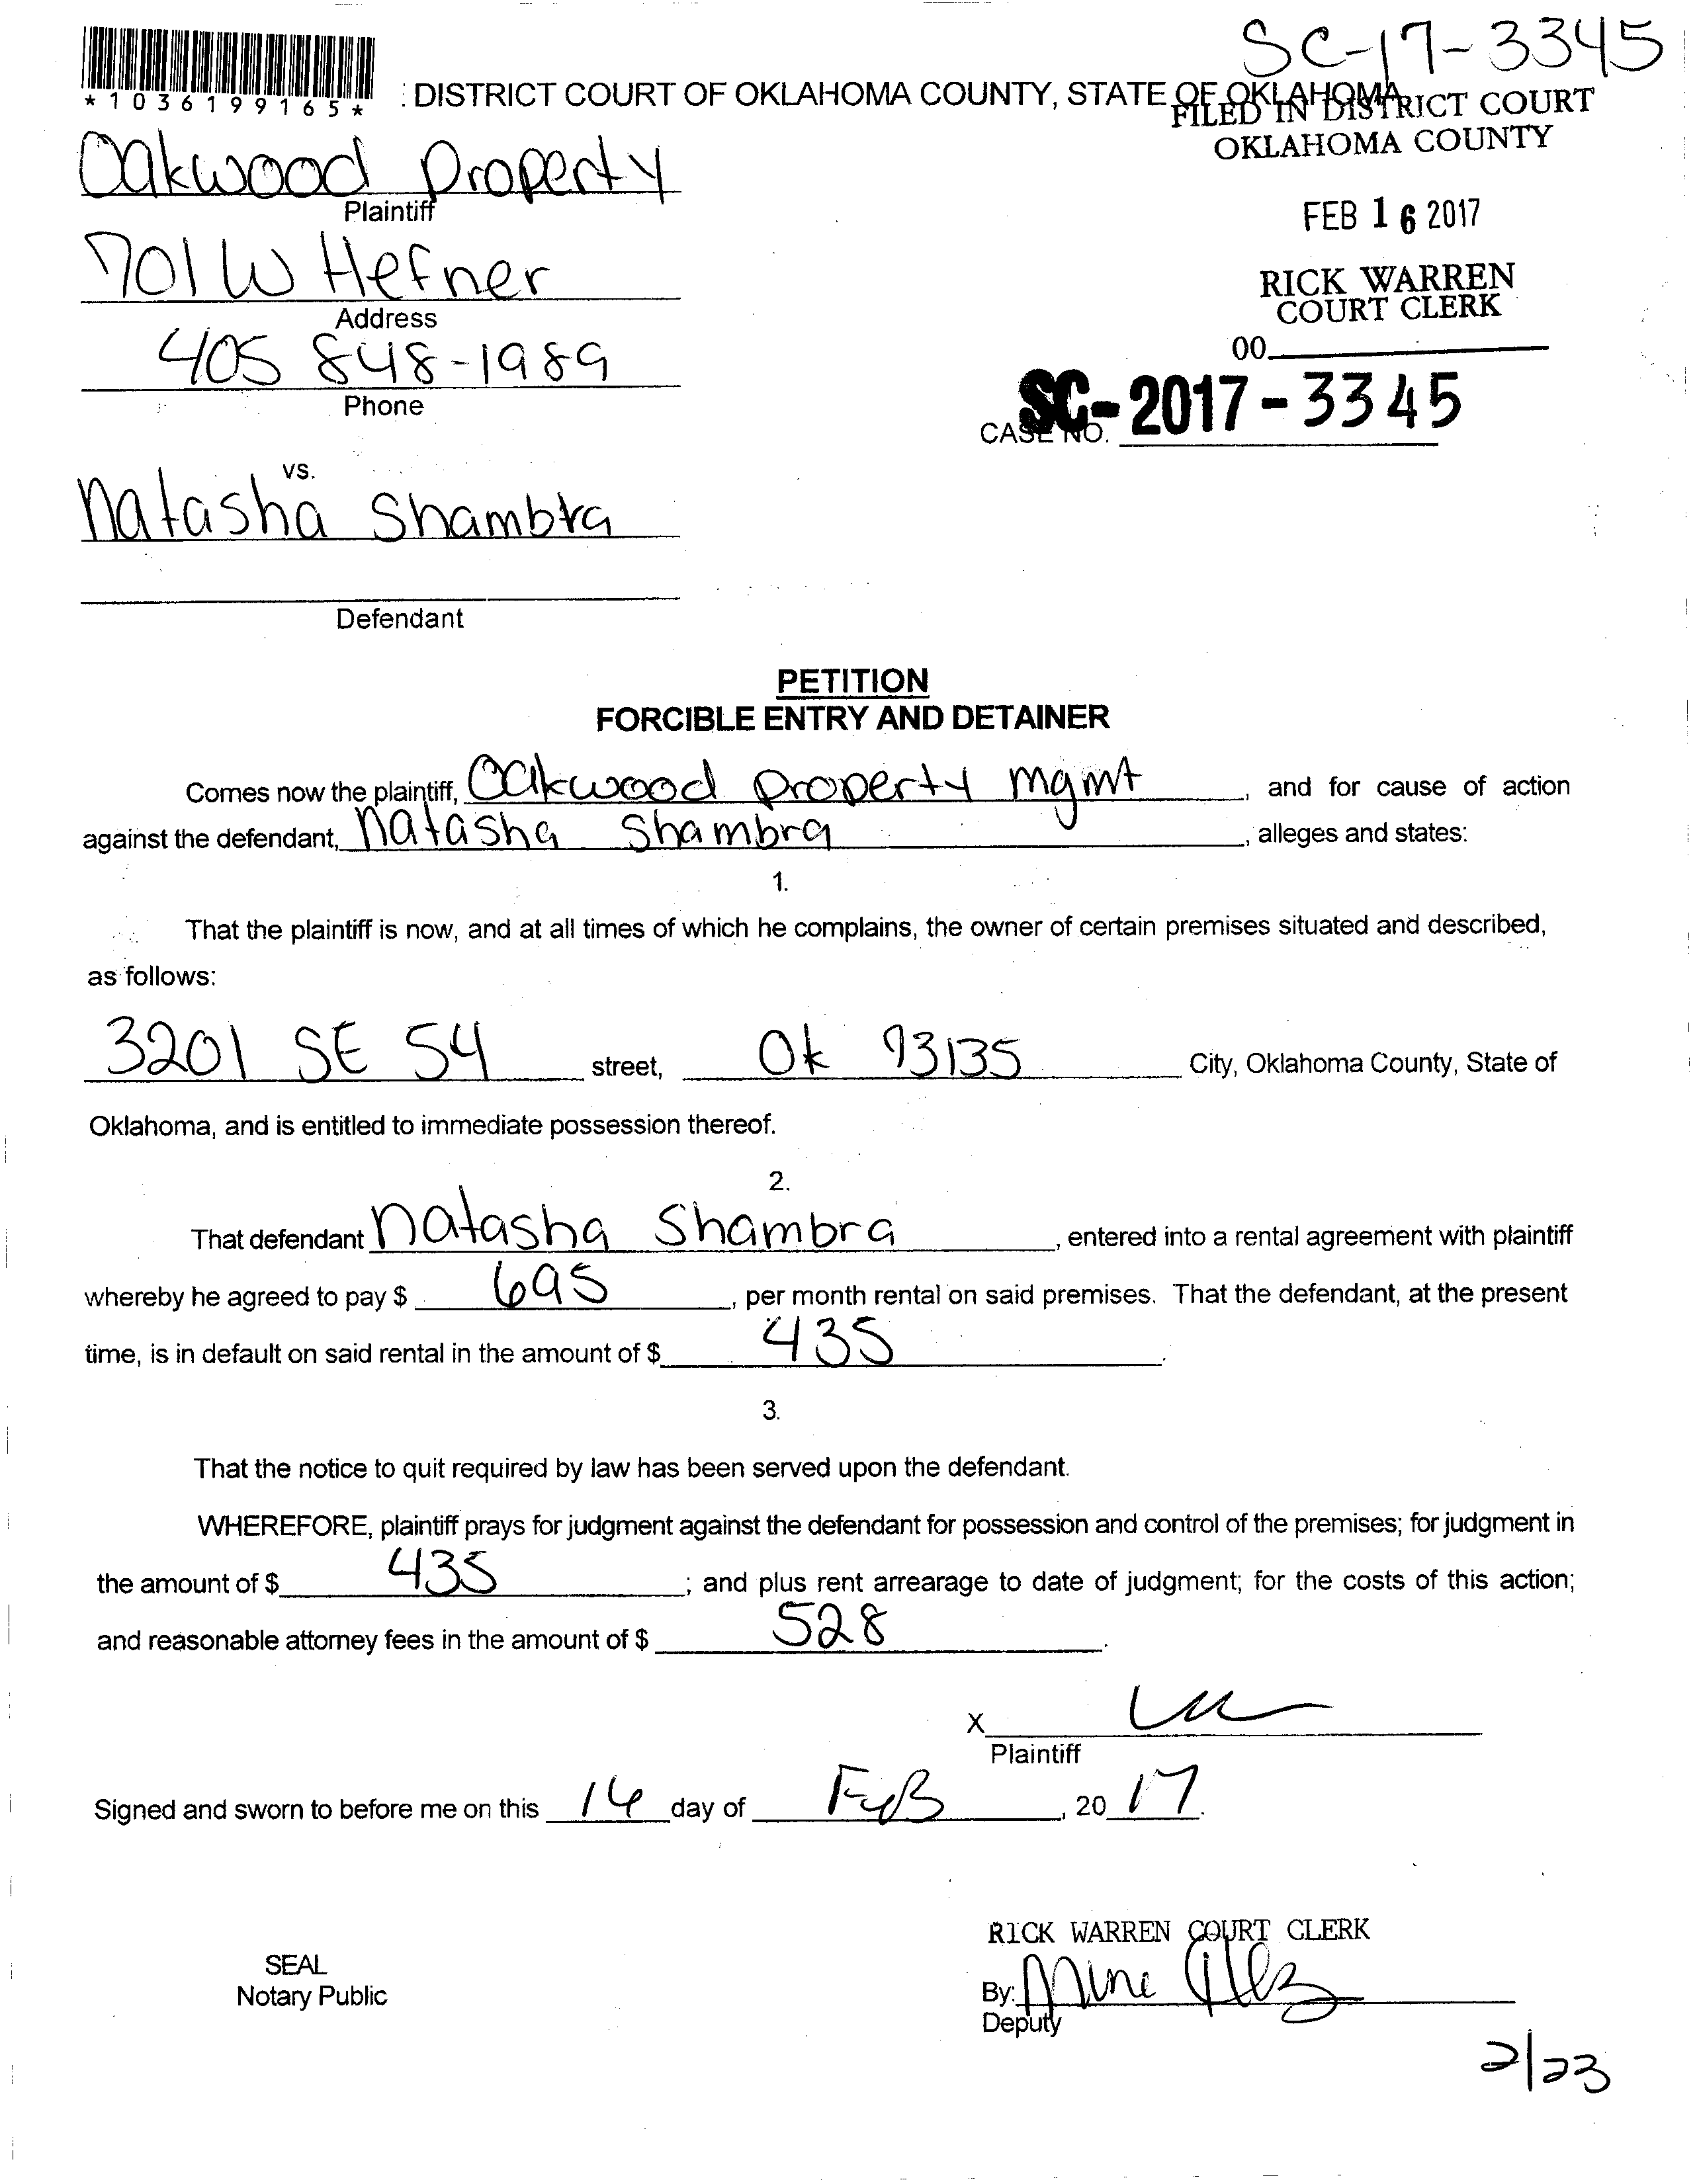 SC-17-3345
*1036199165*
: DISTRICT COURT OF OKLAHOMA COUNTY, STATE OF OKLAHOMA
FILED IN DISTRICT COURT
OKLAHOMA COUNTY
Oakwood Property
Plaintiff
FEB 16 2017
701 W Hefner
Address
RICK WARREN
COURT CLERK
405 848-1989
Phone
00
CASE NO. SC-2017-3345
vs.
Natasha Shambra
Defendant
PETITION
FORCIBLE ENTRY AND DETAINER
Comes now the plaintiff, Oakwood Property mgmt, and for cause of action
against the defendant, Natasha Shambra, alleges and states:
1.
That the plaintiff is now, and at all times of which he complains, the owner of certain premises situated and described,
as follows:
3201 SE 54 street, Ok 73135 City, Oklahoma County, State of
Oklahoma, and is entitled to immediate possession thereof.
2.
That defendant Natasha Shambra, entered into a rental agreement with plaintiff
whereby he agreed to pay $ 695, per month rental on said premises. That the defendant, at the present
time, is in default on said rental in the amount of $ 435.
3.
That the notice to quit required by law has been served upon the defendant.
WHEREFORE, plaintiff prays for judgment against the defendant for possession and control of the premises; for judgment in
the amount of $ 435; and plus rent arrearage to date of judgment; for the costs of this action;
and reasonable attorney fees in the amount of $ 528.
X
Plaintiff
Signed and sworn to before me on this 16 day of FEB, 20 17.
RICK WARREN COURT CLERK
SEAL
Notary Public
By:
Deputy
2/23